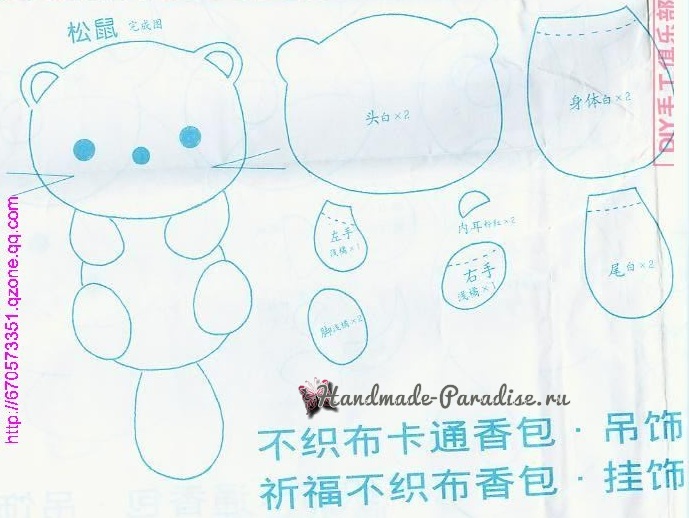 松鼠 完成图
头白×2
身体白×2
左手
浅橘×1
内耳粉红×2
右手
浅橘×1
尾白×2
脚浅橘×2
Handmade-Paradise.ru
不织布卡通香包·吊饰
祈福不织布香包·挂饰
http://670573351.qzone.qq.com